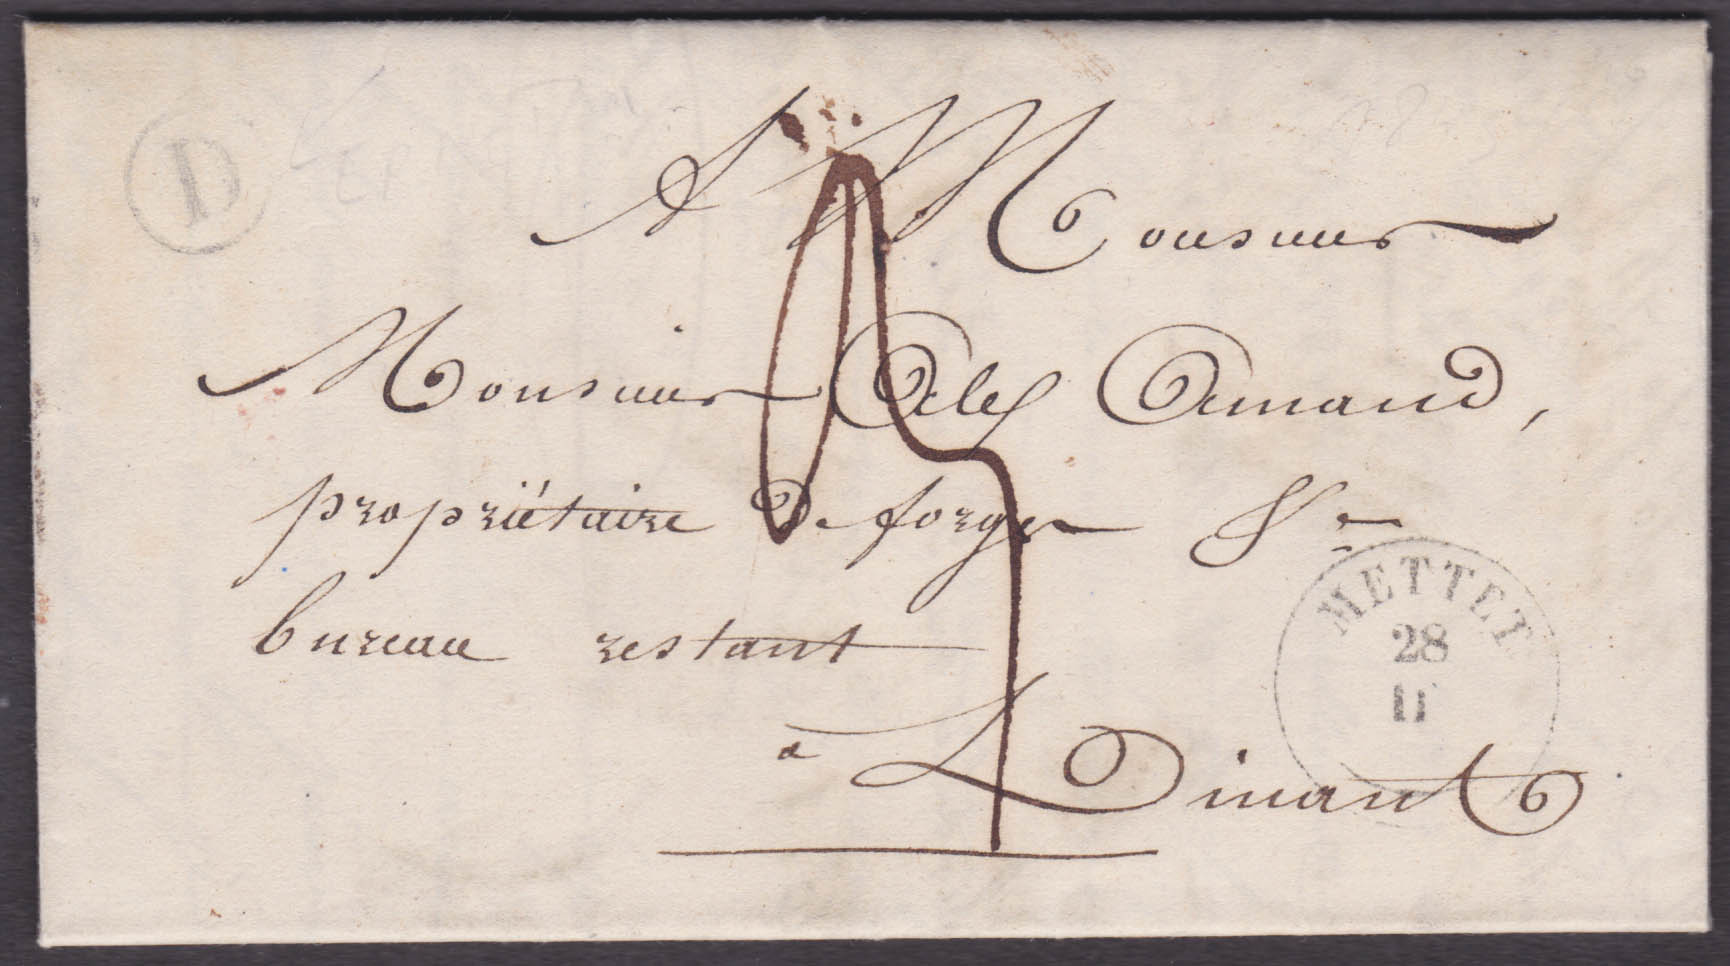 D
A Monsieur
Monsieur Amand,
propriétaire de forges
bureau restant
à Dinant
METTET
28
11